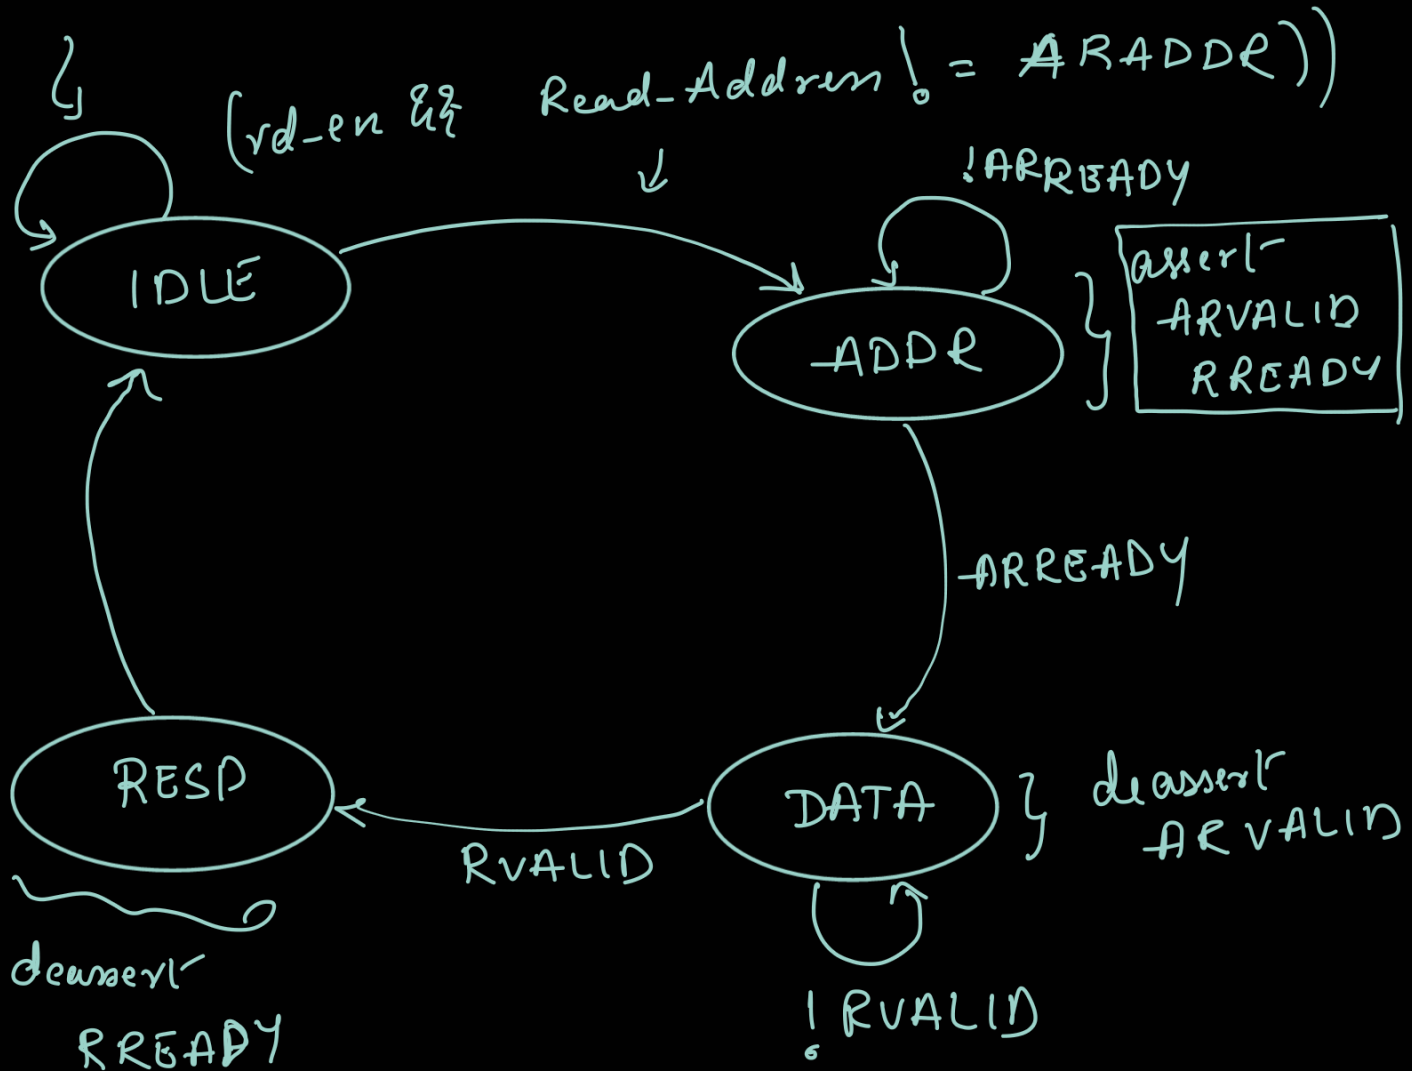 (rd_en && Read_Address != ARADDR))
!ARREADY
IDLE
ADDR
assert
ARVALID
RREADY
ARREADY
RESP
DATA
deassert
ARVALID
RVALID
deassert
RREADY
!RVALID